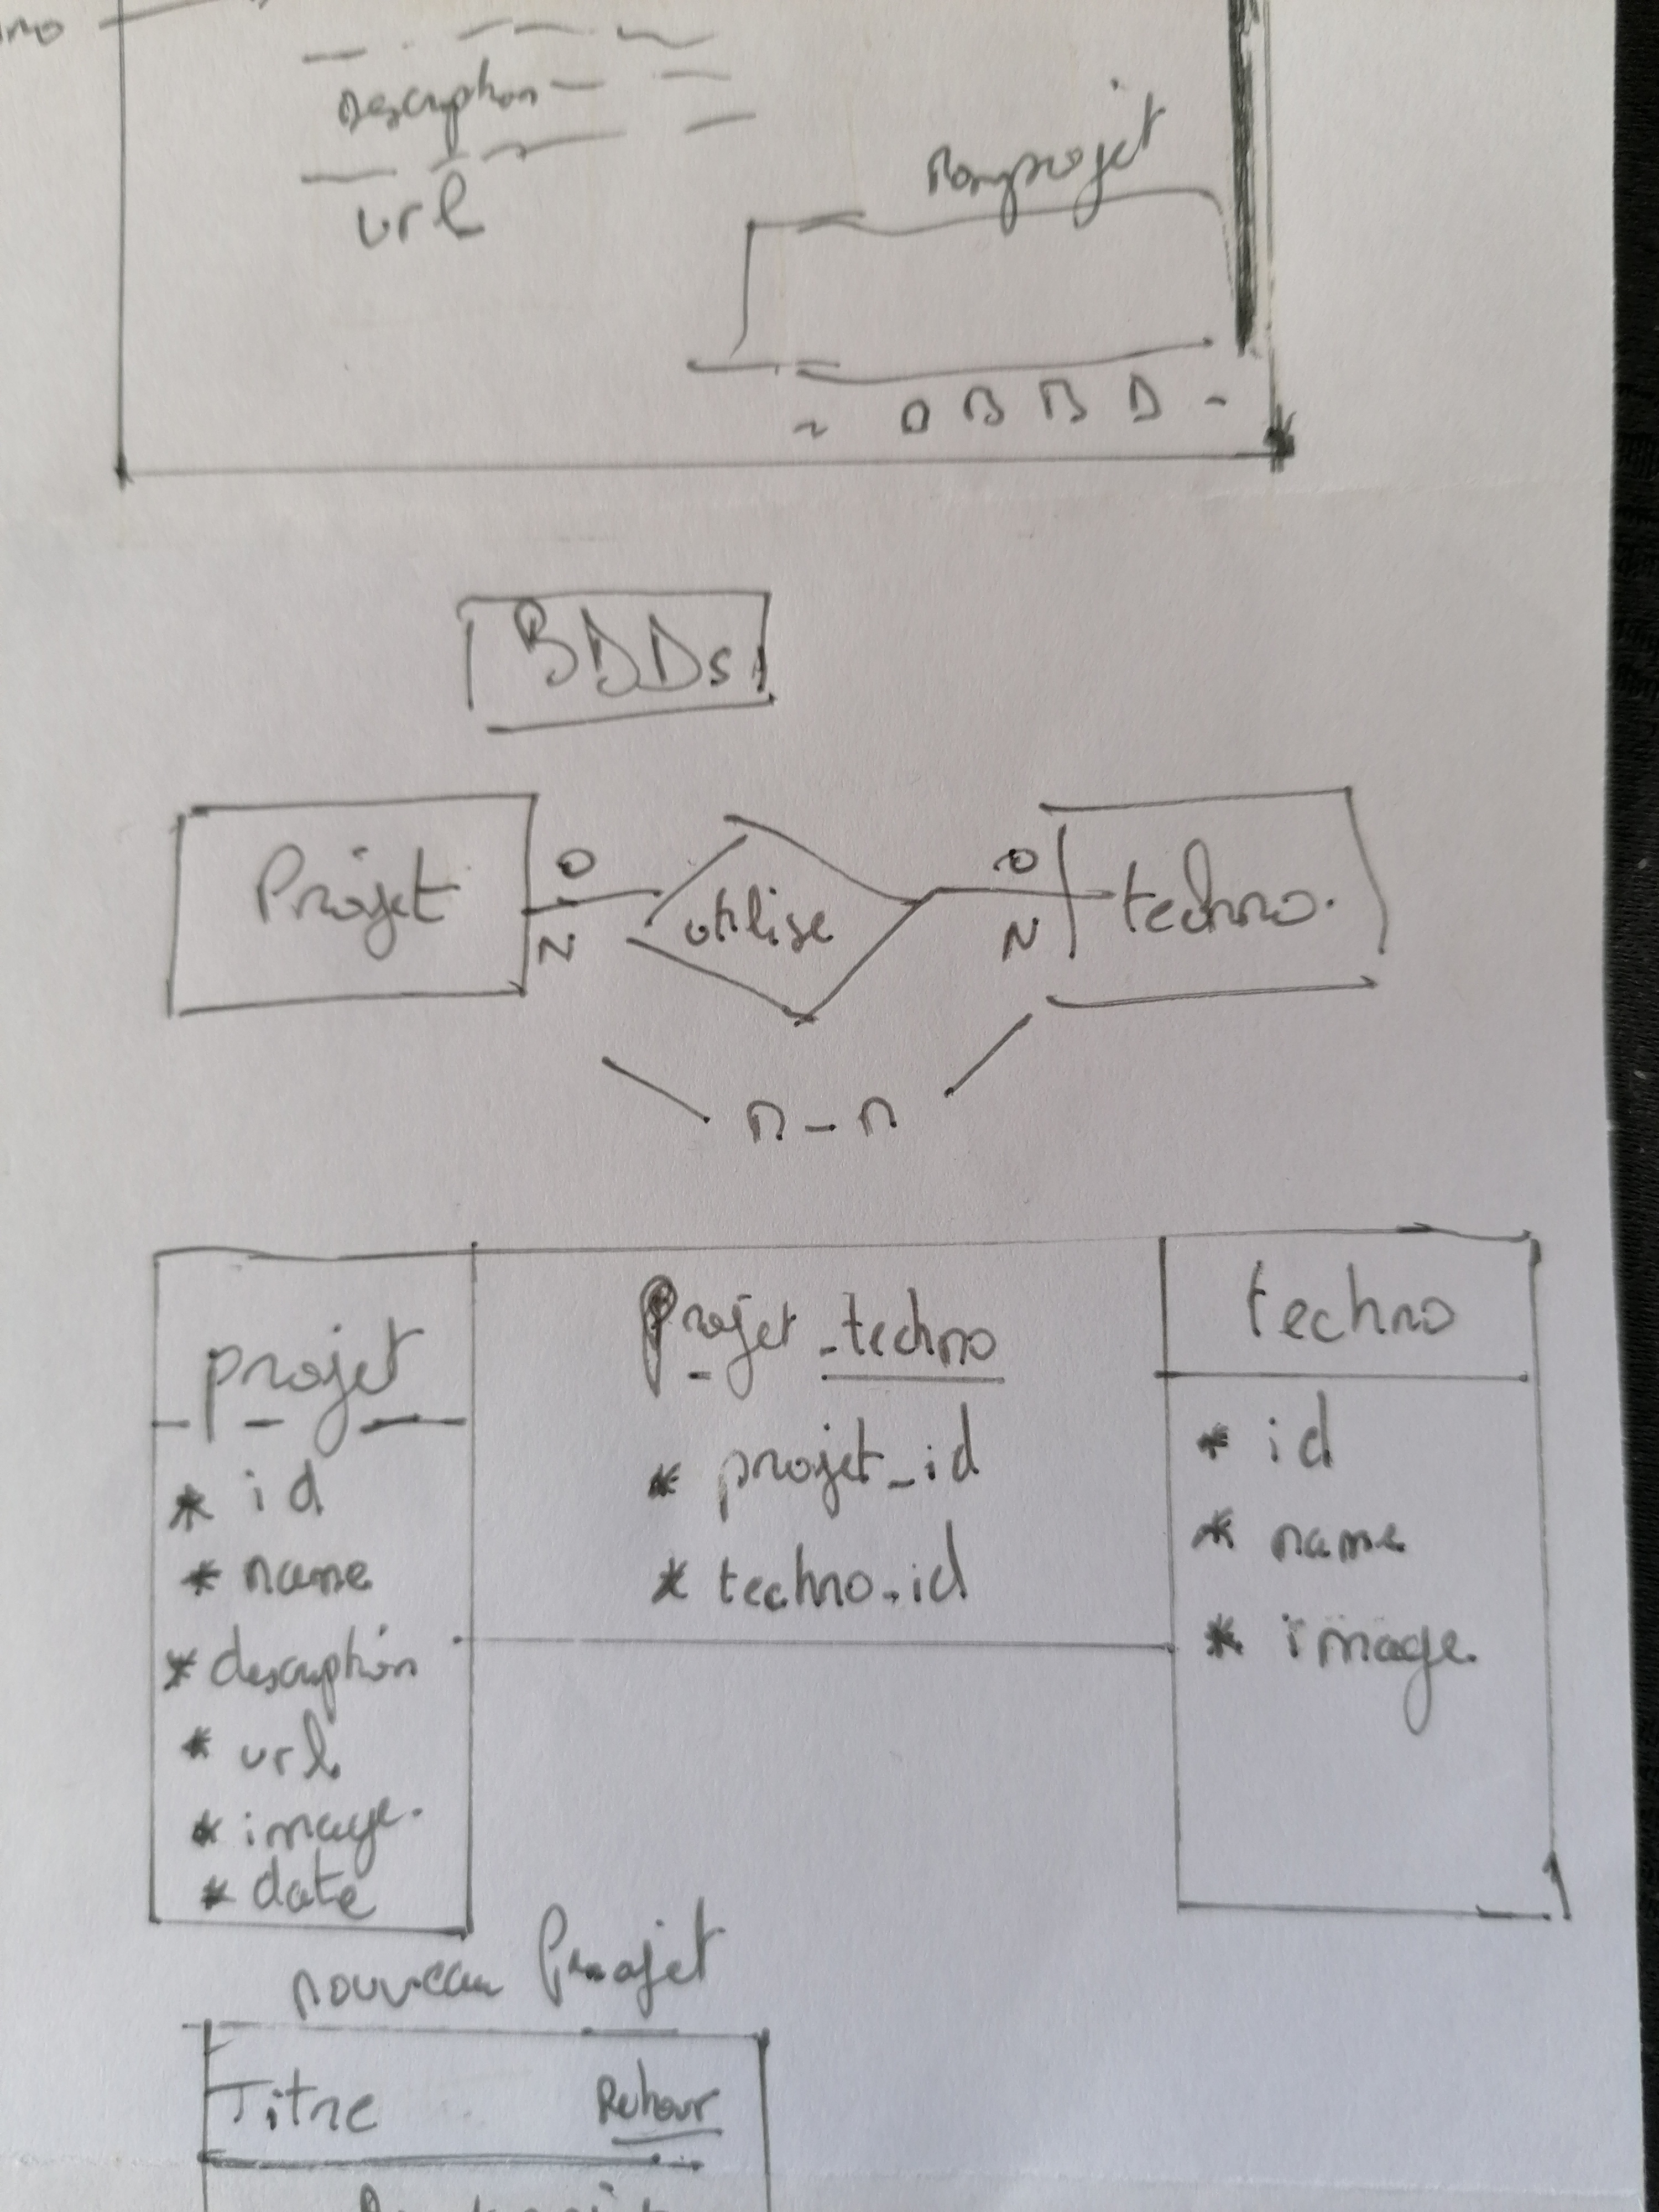 Description
url
BDDs
Projet
O
N
utilise
O
N
techno.
n - n
projet
* id
* name
* description
* url
* image.
* date
Projet_techno
* projet_id
* techno_id
techno
* id
* name
* image.
nouveau Projet
Titre Retour